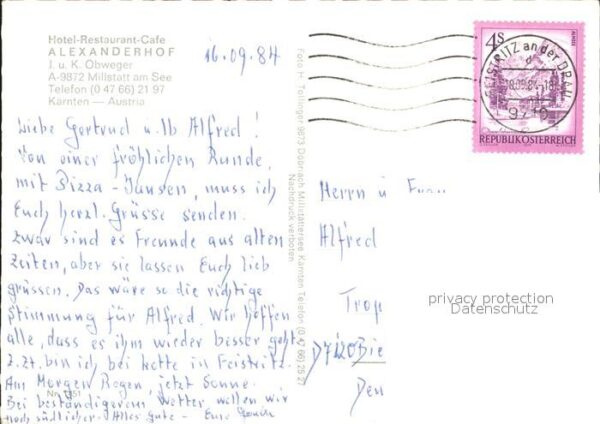 Hotel-Restaurant-Cafe
ALEXANDERHOF
J. u. K. Obweger
A-9872 Millstatt am See
Telefon (0 47 66) 21 97
Kärnten — Austria
16.09.84
Liebe Gertrud u. lb Alfred!
Von einer fröhlichen Runde
mit Pizza-Jausen, muss ich
Euch herzl. Grüsse senden.
Zwar sind es Freunde aus alten
Zeiten, aber sie lassen Euch lieb
grüssen. Das wäre so die richtige
Stimmung für Alfred. Wir hoffen
alle, dass es ihm wieder besser geht
z.Zt. bin ich bei in Feistritz.
Am Morgen Regen, jetzt Sonne.
Bei beständigerem Wetter wollen wir
noch südlicher. Alles Gute - Eure
Foto H. 9873 Döbriach Millstättersee Kärnten Telefon (0 47 66) 25 27
Nachdruck verboten
4S
FEISTRITZ an der DRAU
9710
REPUBLIK ÖSTERREICH
Herrn u
Alfred
Trop
D7120 Bie
Den
privacy protection
Datenschutz